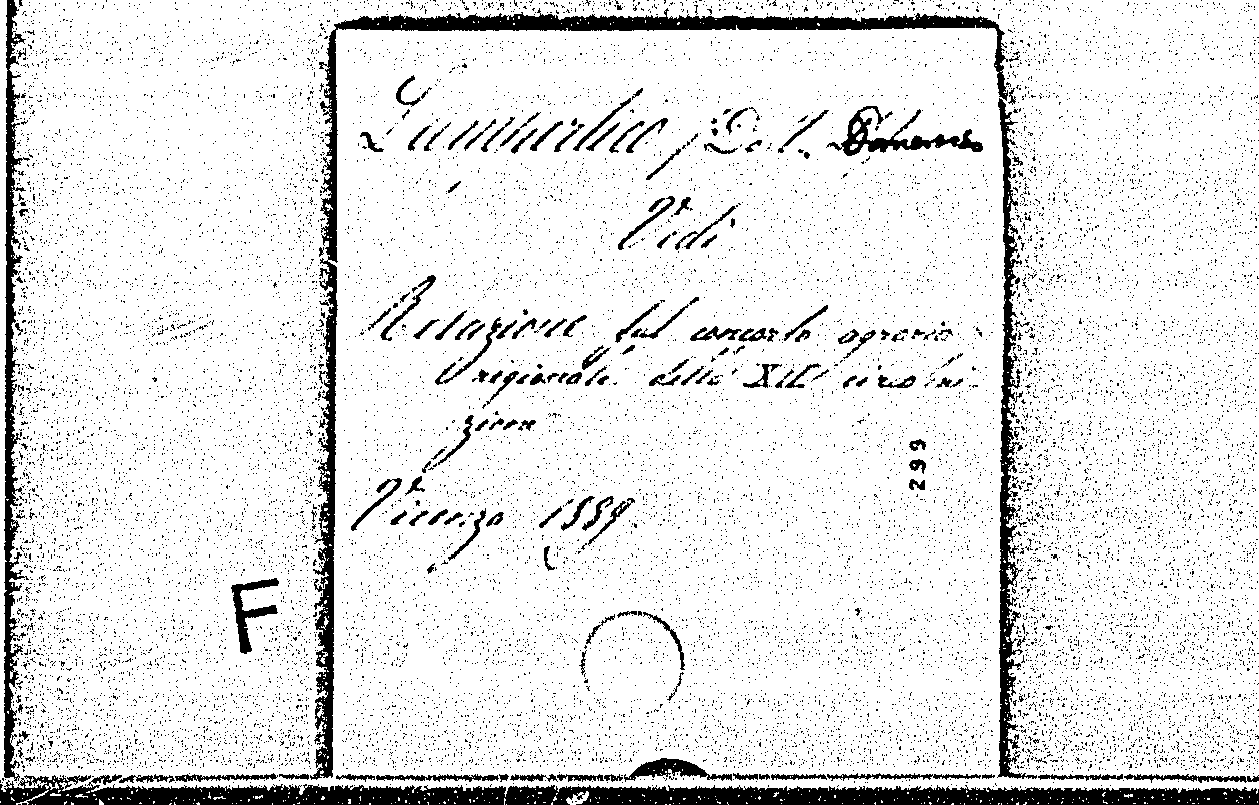 Lampertico / Dott. Domenico
Vedi
Relazione sul concorso agrario
regionale della XII circoscri-
zione
Vicenza 1889.
299
F